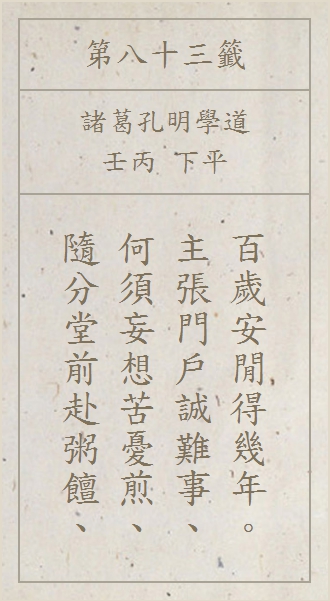 第八十三籤
諸葛孔明學道
壬丙 下平
百歲安閒得幾年。
主張門戶誠難事、
何須妄想苦憂煎、
隨分堂前赴粥饘、